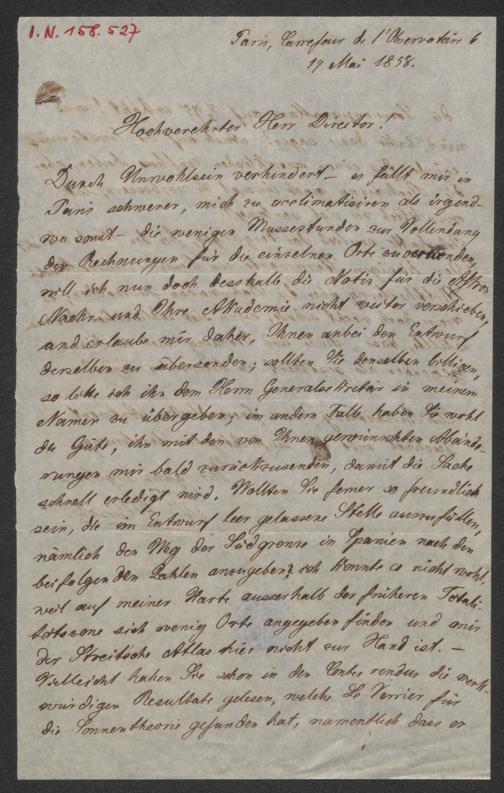 I.N. 158.527
Paris, Carrefour de l'Observatoire 6
17 Mai 1858.
Hochverehrter Herr Director!
Durch Unwohlsein verhindert – es fällt mir in
Paris schwerer, mich zu acclimatisiren als irgend-
wo sonst – die wenigen Mussestunden zur Vollendung
der Rechnungen für die einzelnen Orte zu verwenden,
will ich nun doch desshalb die Notiz für die Astron.
Nachr. und Ihre Akademie nicht weiter verschieben,
und erlaube mir daher, Ihnen anbei den Entwurf
derselben zu übersenden; sollten Sie denselben billigen,
so bitte ich ihn dem Herrn Generalsekretär in meinem
Namen zu übergeben; im andern Falle haben Sie wohl
die Güte, ihn mit den von Ihnen gewünschten Abände-
rungen mir bald zurückzusenden, damit die Sache
schnell erledigt wird. Wollten Sie ferner so freundlich
sein, die im Entwurf leer gelassene Stelle auszufüllen,
nämlich den Weg der Südgrenze in Spanien nach den
beifolgenden Zahlen anzugeben? ich konnte es nicht wohl,
weil auf meiner Karte ausserhalb der früheren Totali-
tätszone sich wenig Orte angegeben finden und mir
der Streitsche Atlas hier nicht zur Hand ist. –
Vielleicht haben Sie schon in den Contes rendus die merk-
würdigen Resultate gelesen, welche Le Verrier für
die Sonnentheorie gefunden hat, namentlich dass er